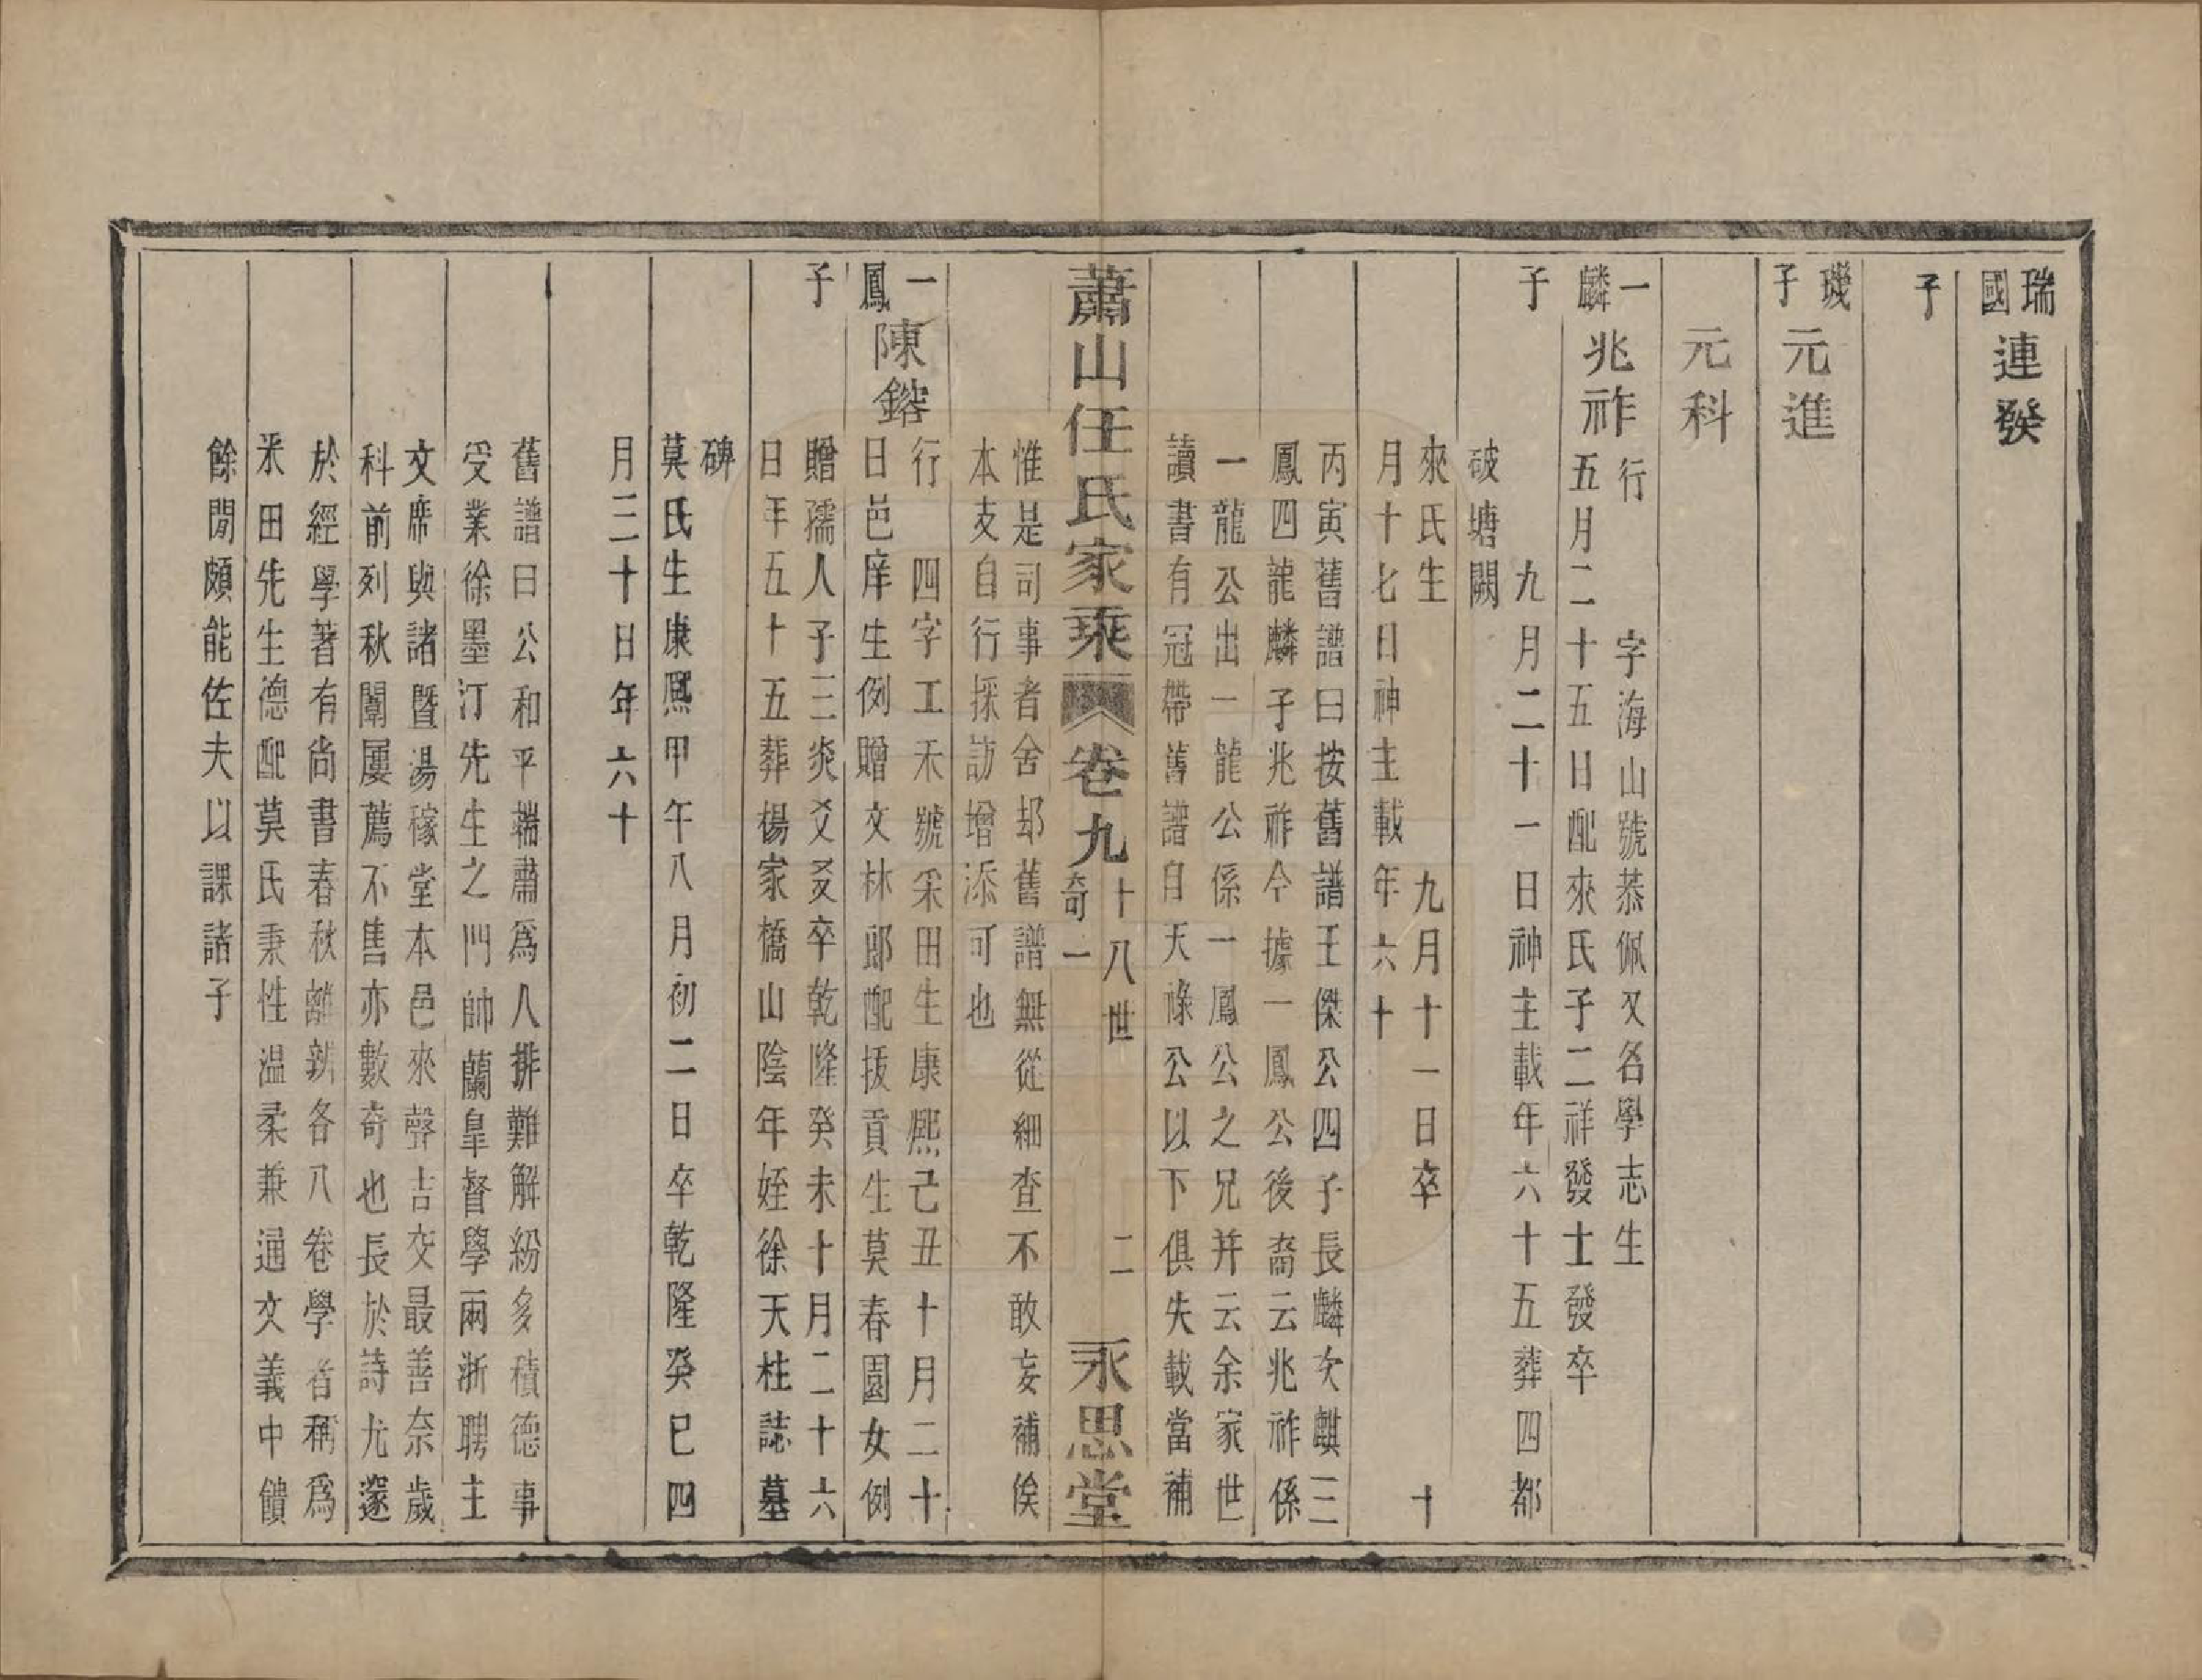 瑞國子 連發
璣子 元進
元科
一麟子 兆祚
行 字海山號恭佩又名學志生
五月二十五日配來氏子二祥發士發卒
九月二十一日神主載年六十五葬四都
破塘闕
來氏生 九月十一日卒 十
月十七日神主載年六十
丙寅舊譜曰按舊譜王傑公四子長麟次麒三
鳳四龍麟子兆祚今據一鳳公後裔云兆祚係
一龍公出一龍公係一鳳公之兄并云余家世
讀書有冠帶舊譜自天祿公以下俱失載當補
蕭山任氏家乘 卷九 十八世 奇一 二 永思堂
惟是司事者舍却舊譜無從細查不敢妄補俟
本支自行採訪增添可也
一鳳子 陳鎔
行 四字工禾號采田生康熙己丑十月二十
日邑庠生例贈文林郎配拔貢生莫春園女例
贈孺人子三炎爻叕卒乾隆癸未十月二十六
日年五十五葬楊家橋山陰年姪徐天柱誌墓
碑
莫氏生康熙甲午八月初二日卒乾隆癸巳四
月三十日年六十
舊譜曰公和平端肅為人排難解紛多積德事
受業徐墨汀先生之門帥蘭皐督學兩浙聘主
文席與諸暨湯稼堂本邑來聲吉交最善奈歲
科前列秋闈屢薦不售亦數奇也長於詩尤邃
於經學著有尚書春秋離辨各八卷學者稱為
采田先生德配莫氏秉性温柔兼通文義中饋
餘閒頗能佐夫以課諸子